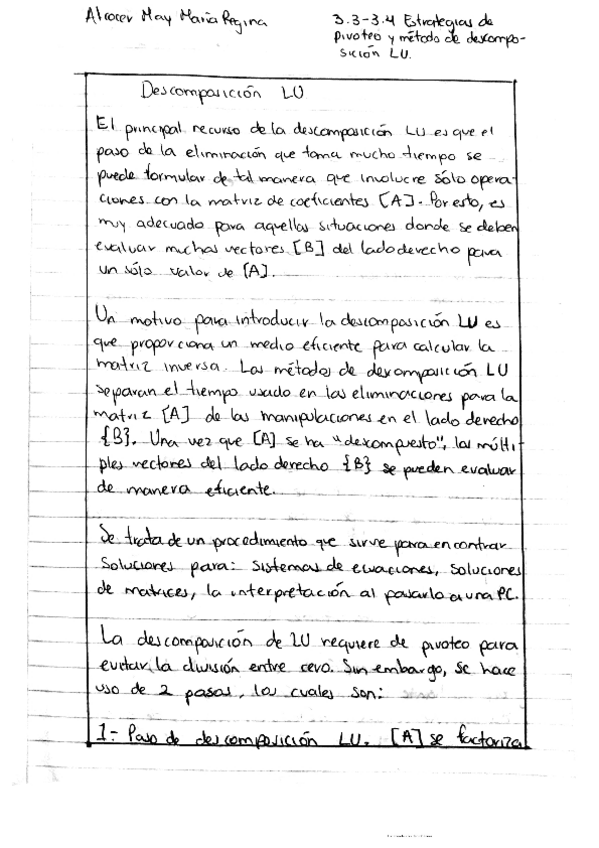 Alcocer May María Regina
3.3-3.4 Estrategias de
pivoteo y método de descompo-
sición LU.
Descomposición LU
El principal recurso de la descomposición LU es que el
paso de la eliminación que toma mucho tiempo se
puede formular de tal manera que involucre sólo opera-
ciones con la matriz de coeficientes [A]. Por esto, es
muy adecuado para aquellas situaciones donde se deben
evaluar muchos vectores [B] del lado derecho para
un sólo valor de [A].
Un motivo para introducir la descomposición LU es
que proporciona un medio eficiente para calcular la
matriz inversa. Los métodos de descomposición LU
separan el tiempo usado en las eliminaciones para la
matriz [A] de las manipulaciones en el lado derecho
{B}. Una vez que [A] se ha "descompuesto", los múlti-
ples vectores del lado derecho {B} se pueden evaluar
de manera eficiente.
Se trata de un procedimiento que sirve para encontrar
soluciones para: sistemas de ecuaciones, soluciones
de matrices, la interpretación al pasarlo a una PC.
La descomposición de LU requiere de pivoteo para
evitar la división entre cero. Sin embargo, se hace
uso de 2 pasos, los cuales son:
1- Paso de descomposición LU. [A] se factoriza